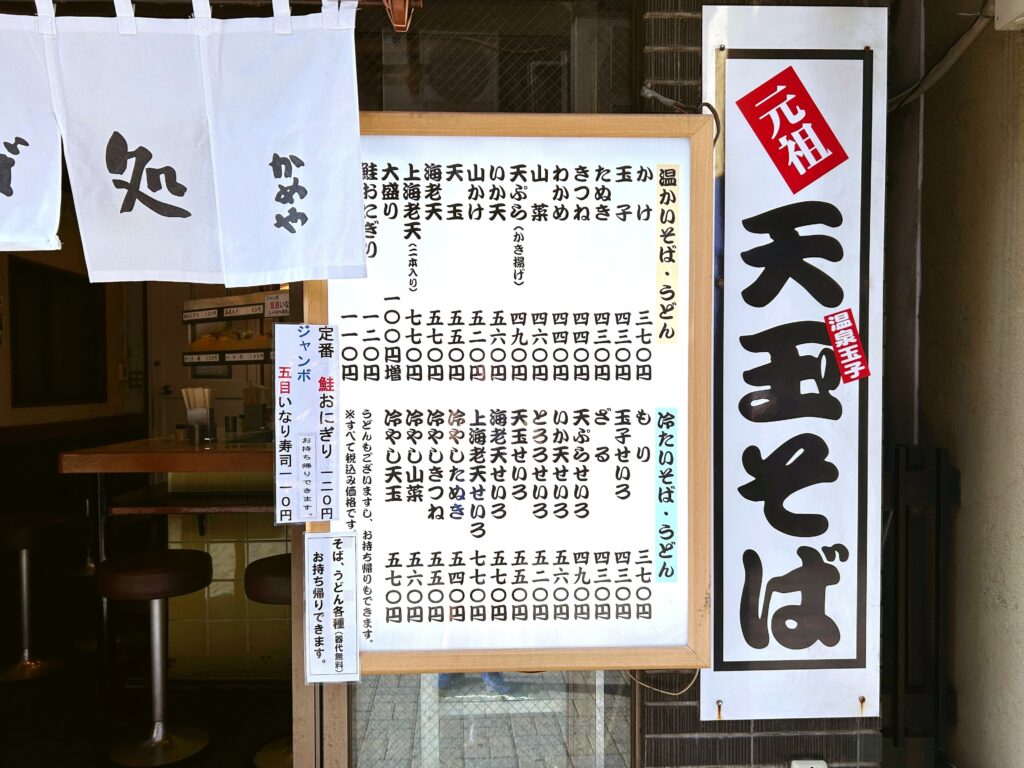 元祖
天玉そば
温泉玉子
温かいそば・うどん
かけ 三七〇円
玉子 四三〇円
たぬき 四三〇円
きつね 四四〇円
わかめ 四四〇円
山菜 四六〇円
天ぷら(かき揚げ) 四九〇円
いか天 五六〇円
山かけ 五二〇円
天玉 五五〇円
海老天 五七〇円
上海老天(二本入り) 七七〇円
大盛り 一〇〇円増
鮭おにぎり 一二〇円
一一〇円
冷たいそば・うどん
もり 三七〇円
玉子せいろ 四三〇円
ざる 四三〇円
天ぷらせいろ 四九〇円
いか天せいろ 五六〇円
とろろせいろ 五二〇円
天玉せいろ 五五〇円
海老天せいろ 五七〇円
上海老天せいろ 七七〇円
冷やしたぬき 五四〇円
冷やしきつね 五五〇円
冷やし山菜 五六〇円
冷やし天玉 五七〇円
うどんもございますし、お持ち帰りもできます。
※すべて税込み価格です。
定番 鮭おにぎり 一二〇円
お持ち帰りできます。
ジャンボ 五目いなり寿司 一一〇円
そば、うどん各種(器代無料)
お持ち帰りできます。
かめや
処